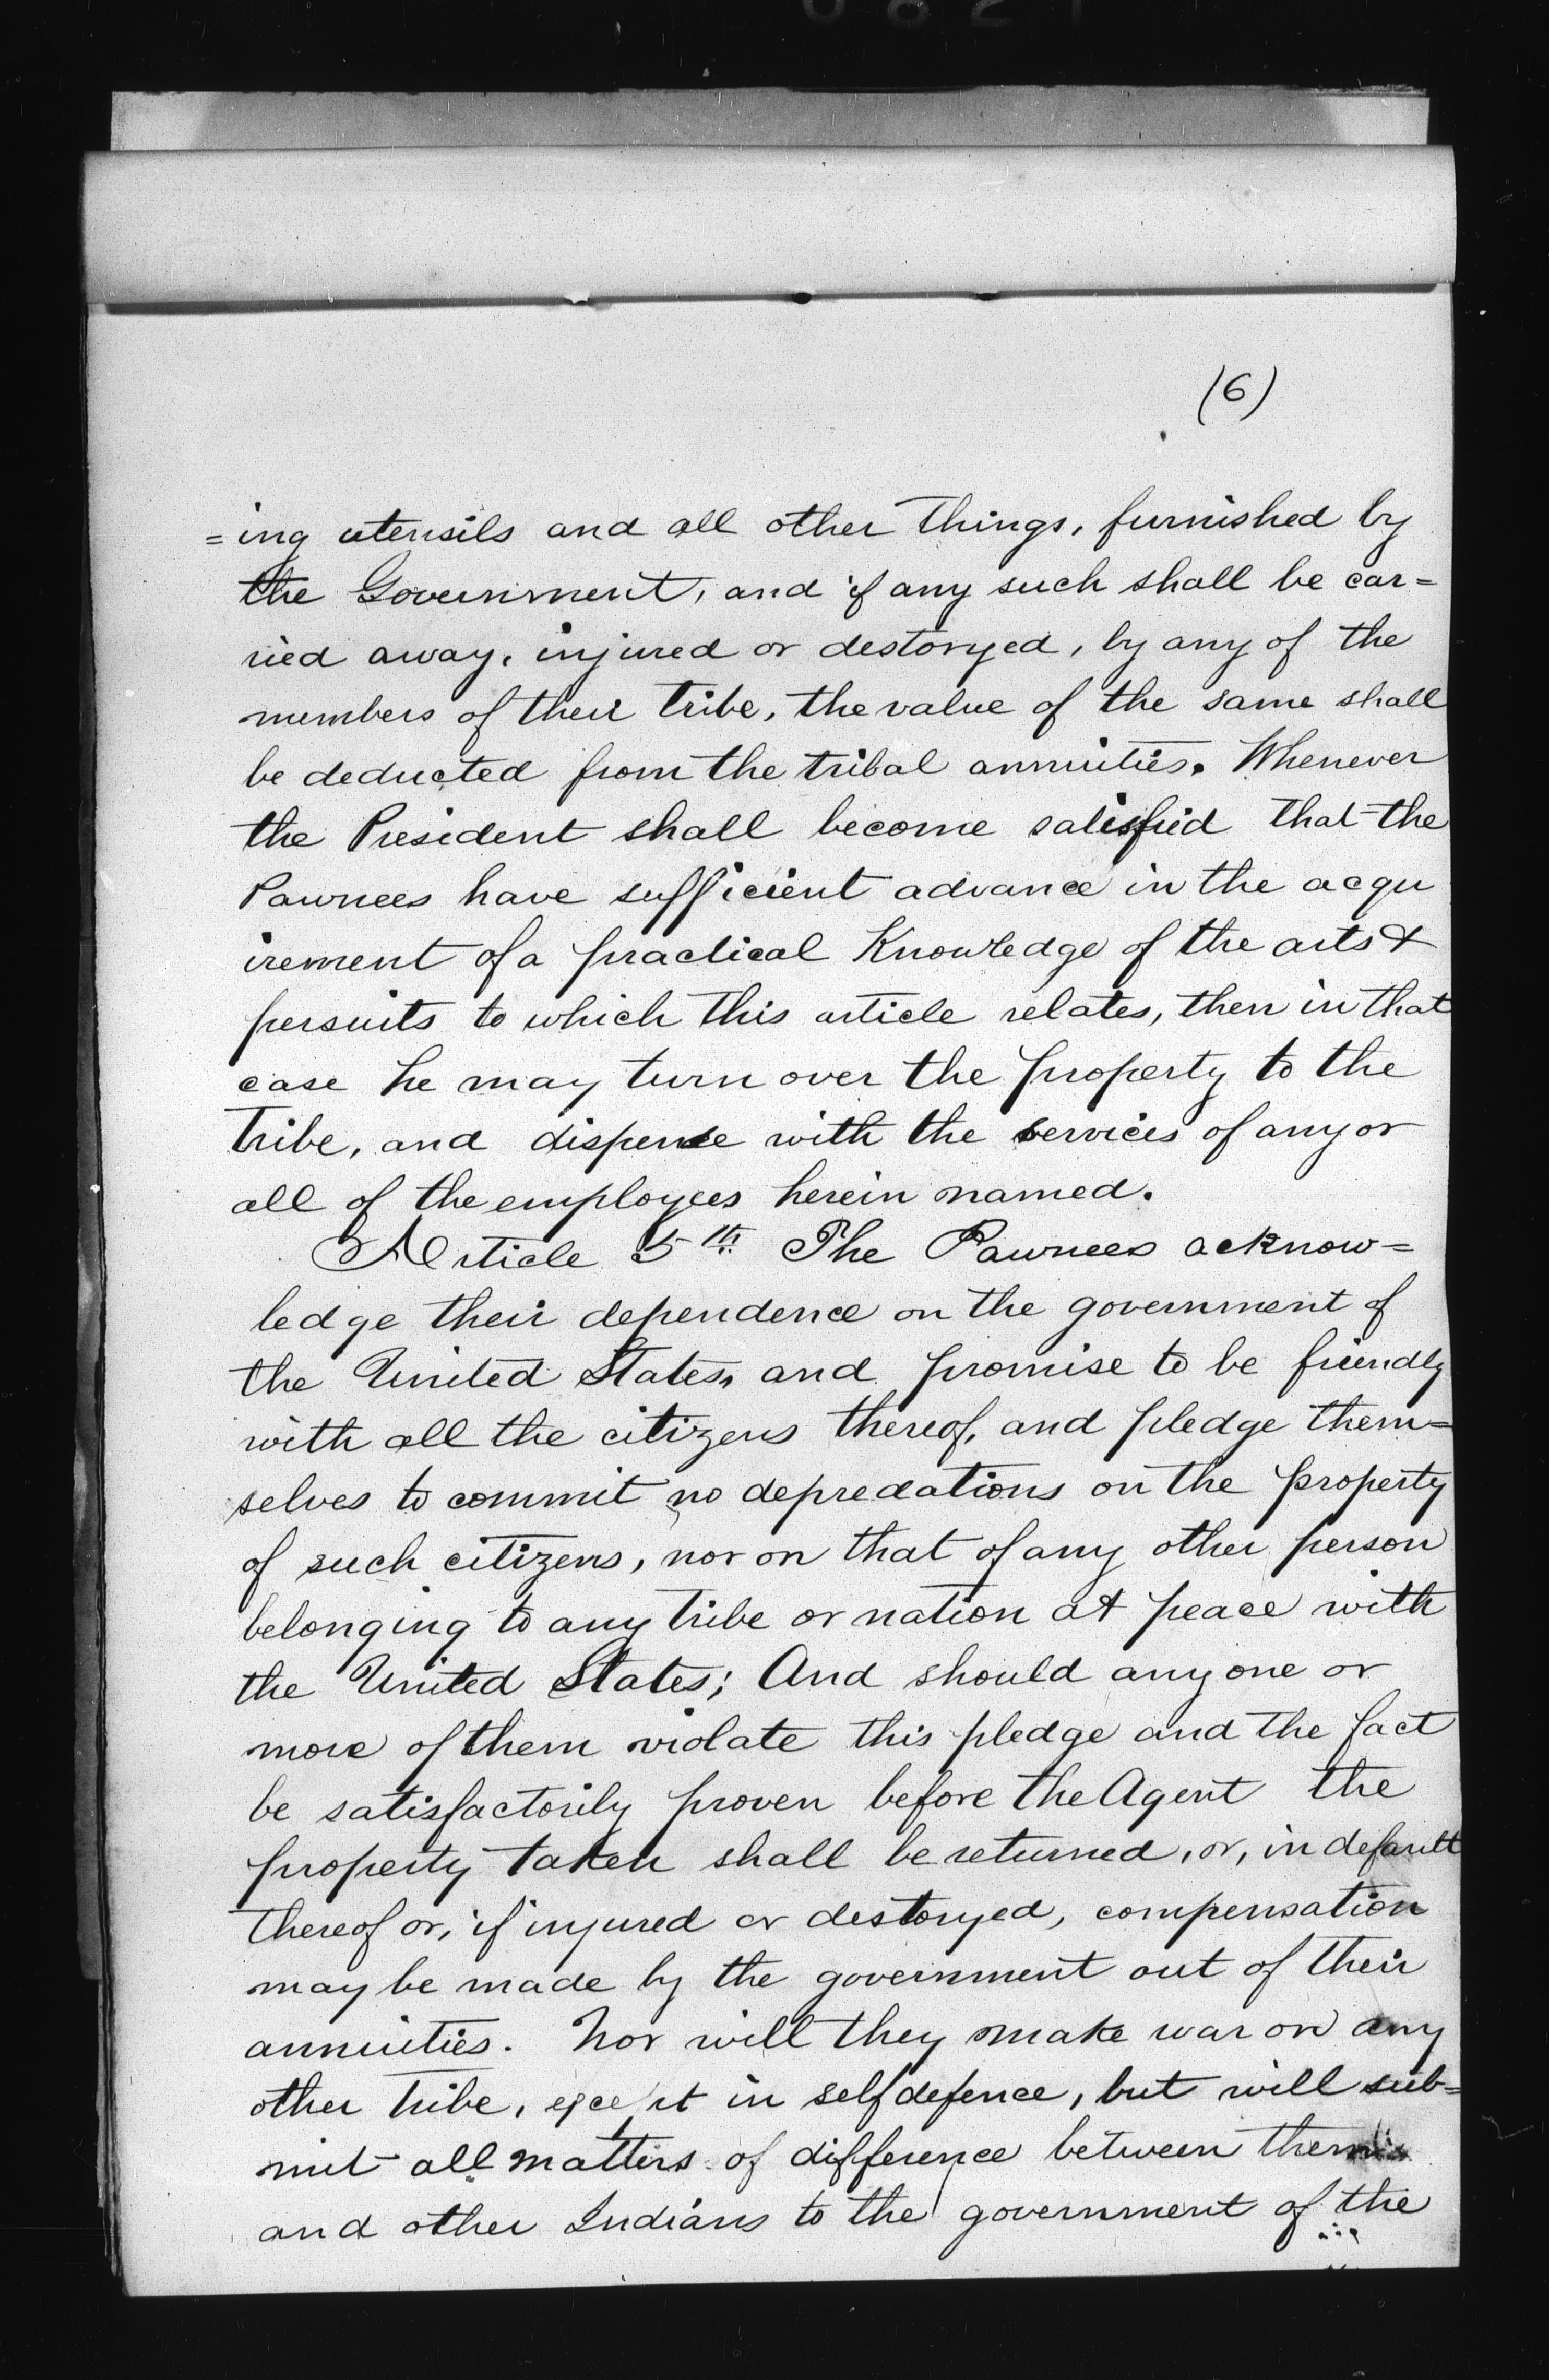 (6)
=ing utensils and all other things, furnished by
the Government, and if any such shall be car=
ried away, injured or destoryed, by any of the
members of their tribe, the value of the same shall
be deducted from the tribal annuities. Whenever
the President shall become satisfied that the
Pawnees have sufficient advance in the acqu
irement of a practical Knowledge of the arts &
persuits to which this article relates, then in that
case he may turn over the property to the
tribe, and dispense with the services of any or
all of the employees herein named.
Article 5th. The Pawnees acknow=
ledge their dependence on the government of
the United States, and promise to be friendly
with all the citizens thereof, and pledge them=
selves to commit no depredations on the property
of such citizens, nor on that of any other person
belonging to any tribe or nation at peace with
the United States; And should any one or
more of them violate this pledge and the fact
be satisfactorily proven before the Agent the
property taken shall be returned, or, in default
thereof or, if injured or destoryed, compensation
may be made by the government out of their
annuities. Nor will they make war on any
other tribe, except in self defence, but will sub=
mit all matters of difference between them
and other Indians to the government of the